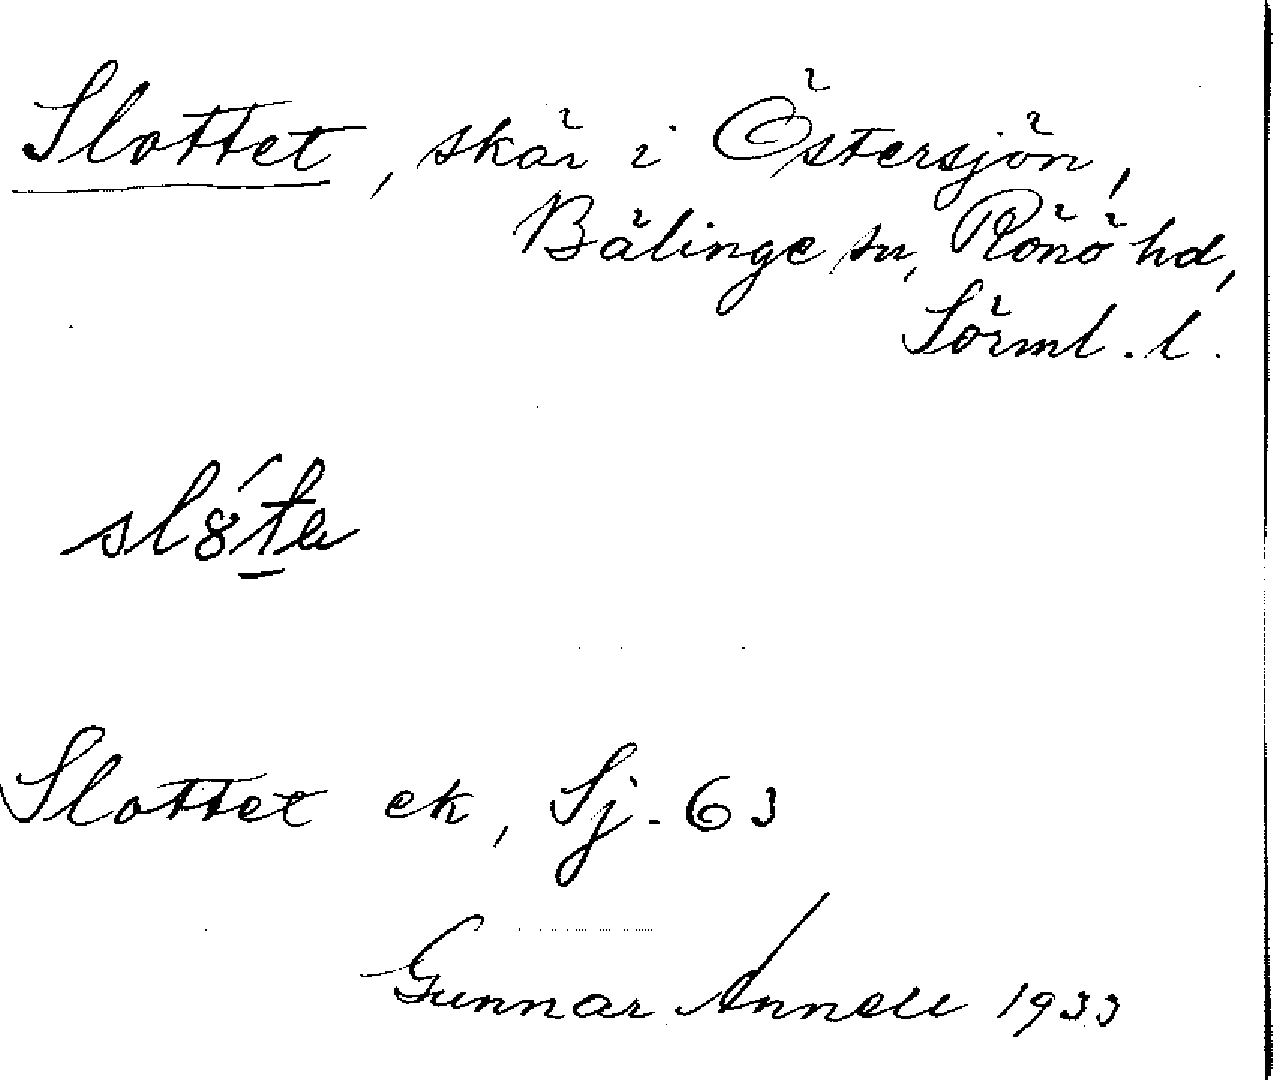 Slottet, skär i Östersjön,
Bälinge sn, Rönö hd,
Sörml. l.
sl8́t̲e
Slottet ek, Sj. 63
Gunnar Annell 1933